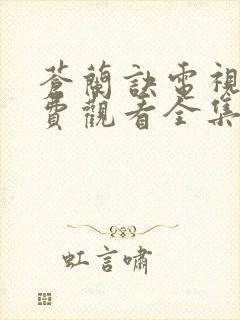 蒼蘭訣電視
費觀看全集
虹言嘯